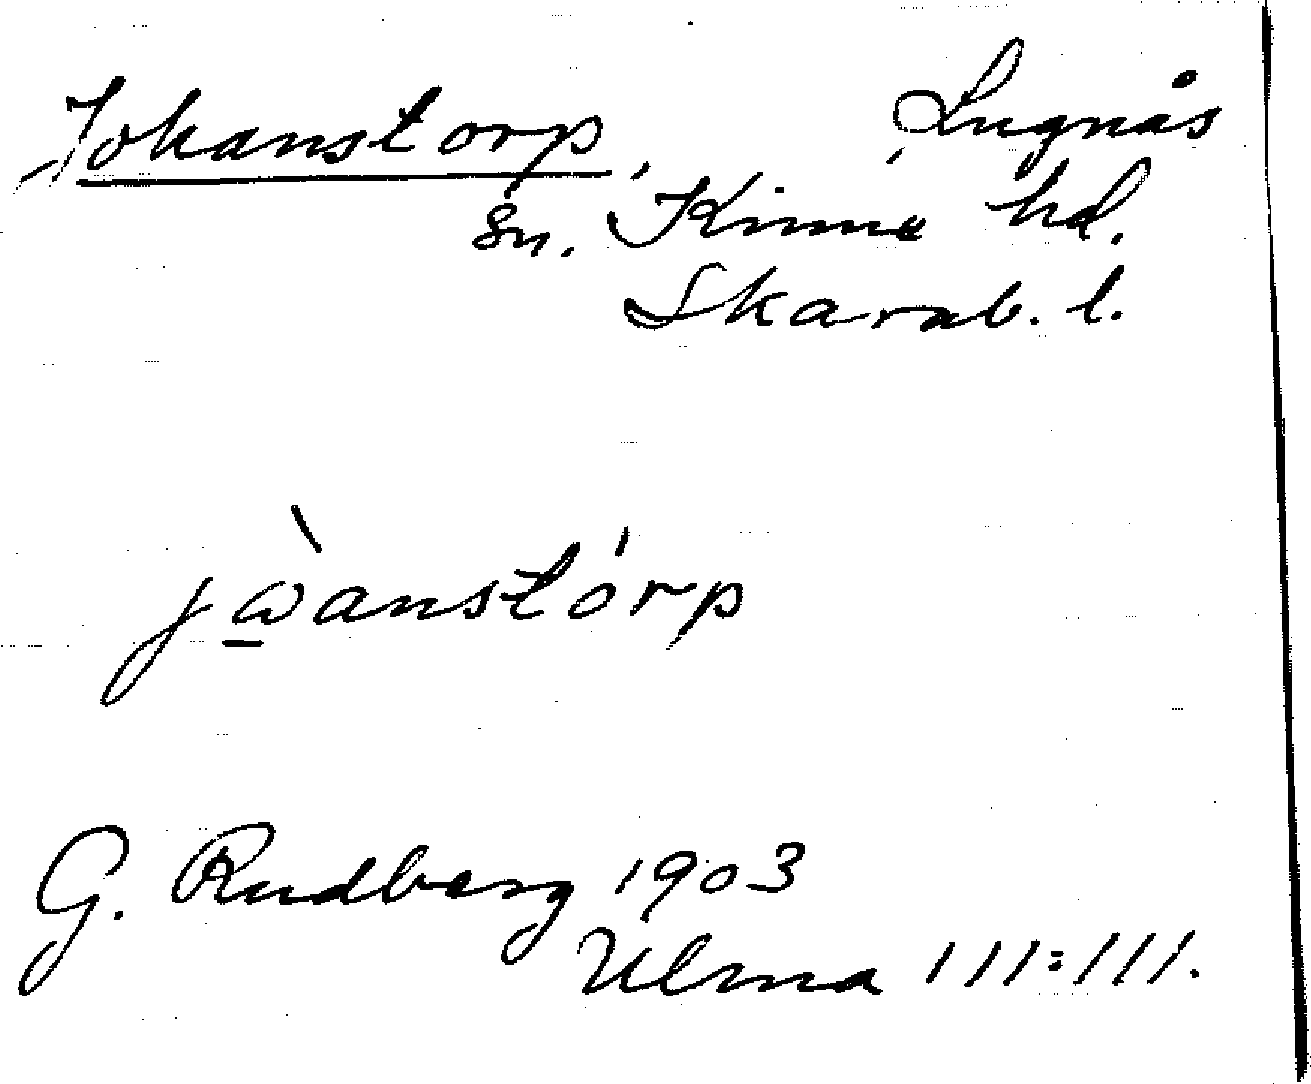 Johanstorp, Lugnås
sn. Kinne hd.
Skarab. l.
jὼ̱anstórp
G. Rudberg 1903
Ulma 111:111.